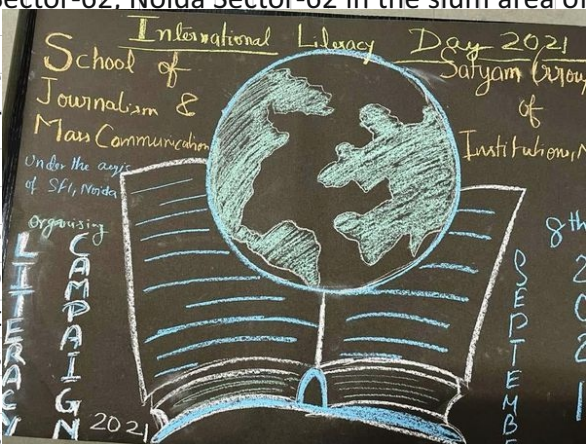 Sector-62, Noida Sector-62 in the slum area of
International Literacy Day 2021
School of
Journalism &
Mass Communication
Under the aegis
of SFI, Noida
organising
LITERACY
CAMPAIGN
2021
Satyam Group
of
Institutions, N
8th
SEPTEMB
2
0
2
1